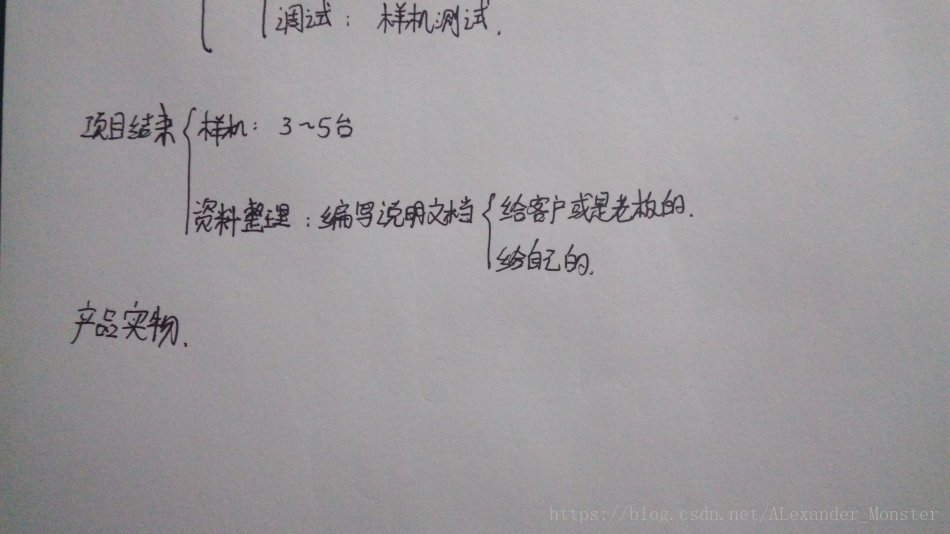 调试: 样机测试.
项目结束 样机: 3~5台
资料整理: 编写说明文档 给客户或是老板的.
给自己的.
产品实物.
https://blog.csdn.net/ALexander_Monster